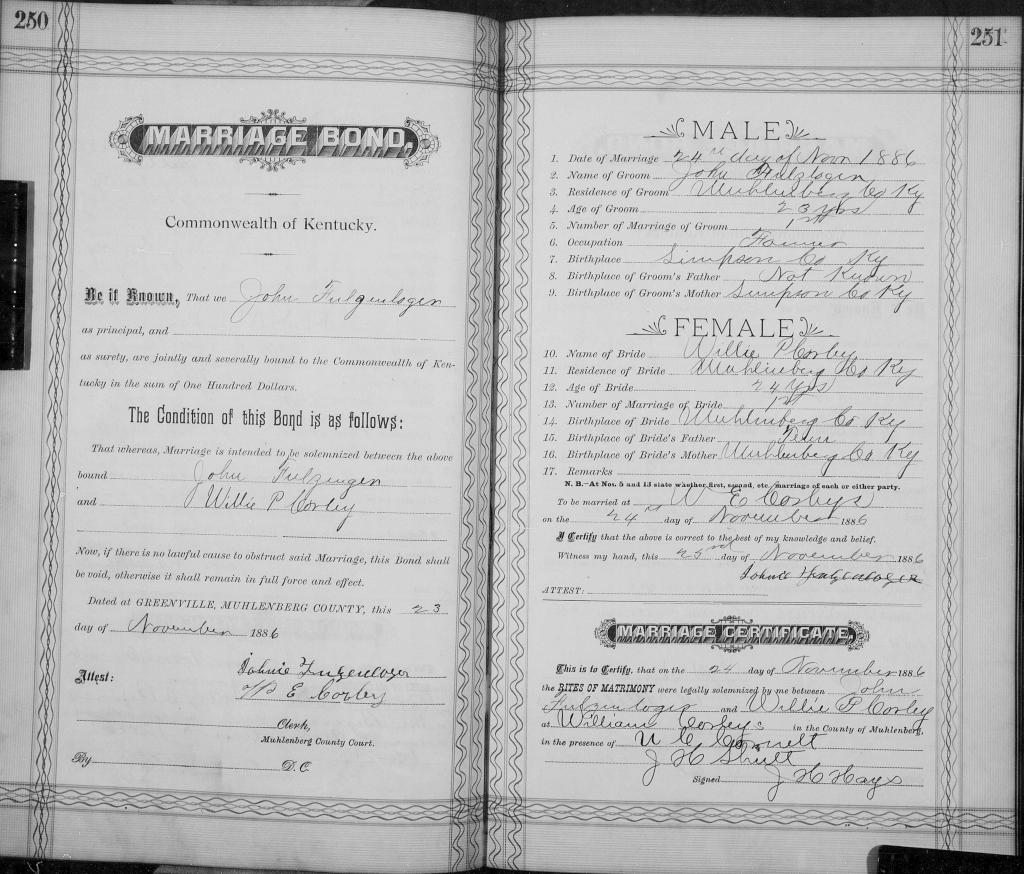 250
MARRIAGE BOND,
Commonwealth of Kentucky.
Be it Known, That we John Fulgenlogen
as principal, and
as surety, are jointly and severally bound to the Commonwealth of Ken-
tucky in the sum of One Hundred Dollars.
The Condition of this Bond is as follows:
That whereas, Marriage is intended to be solemnized between the above
bound John
and Willie P Corley
Now, if there is no lawful cause to obstruct said Marriage, this Bond shall
be void, otherwise it shall remain in full force and effect.
Dated at GREENVILLE, MUHLENBERG COUNTY, this 23
day of November 1886
Attest: Johnie
E Corley
Clerk,
Muhlenberg County Court.
By D. C.
251
MALE
1. Date of Marriage 24th day of Novr 1886
2. Name of Groom John
3. Residence of Groom Muhlenberg Co Ky
4. Age of Groom 23 yrs
5. Number of Marriage of Groom 1st
6. Occupation Farmer
7. Birthplace Simpson Co Ky
8. Birthplace of Groom's Father Not Known
9. Birthplace of Groom's Mother Simpson Co Ky
FEMALE
10. Name of Bride Willie P Corley
11. Residence of Bride Muhlenberg Co Ky
12. Age of Bride 24 yrs
13. Number of Marriage of Bride 1st
14. Birthplace of Bride Muhlenberg Co Ky
15. Birthplace of Bride's Father Tenn
16. Birthplace of Bride's Mother Muhlenberg Co Ky
17. Remarks
N. B.—At Nos. 5 and 13 state whether first, second, etc., marriage of each or either party.
To be married at W E Corleys
on the 24th day of November 1886
I Certify that the above is correct to the best of my knowledge and belief.
Witness my hand, this day of November 1886
Johnie
ATTEST:
MARRIAGE CERTIFICATE,
This is to Certify, that on the 24 day of November 1886
the RITES OF MATRIMONY were legally solemnized by me between John
and Willie P Corley
at William Corleys in the County of Muhlenberg,
in the presence of
J H
Signed J H Hays